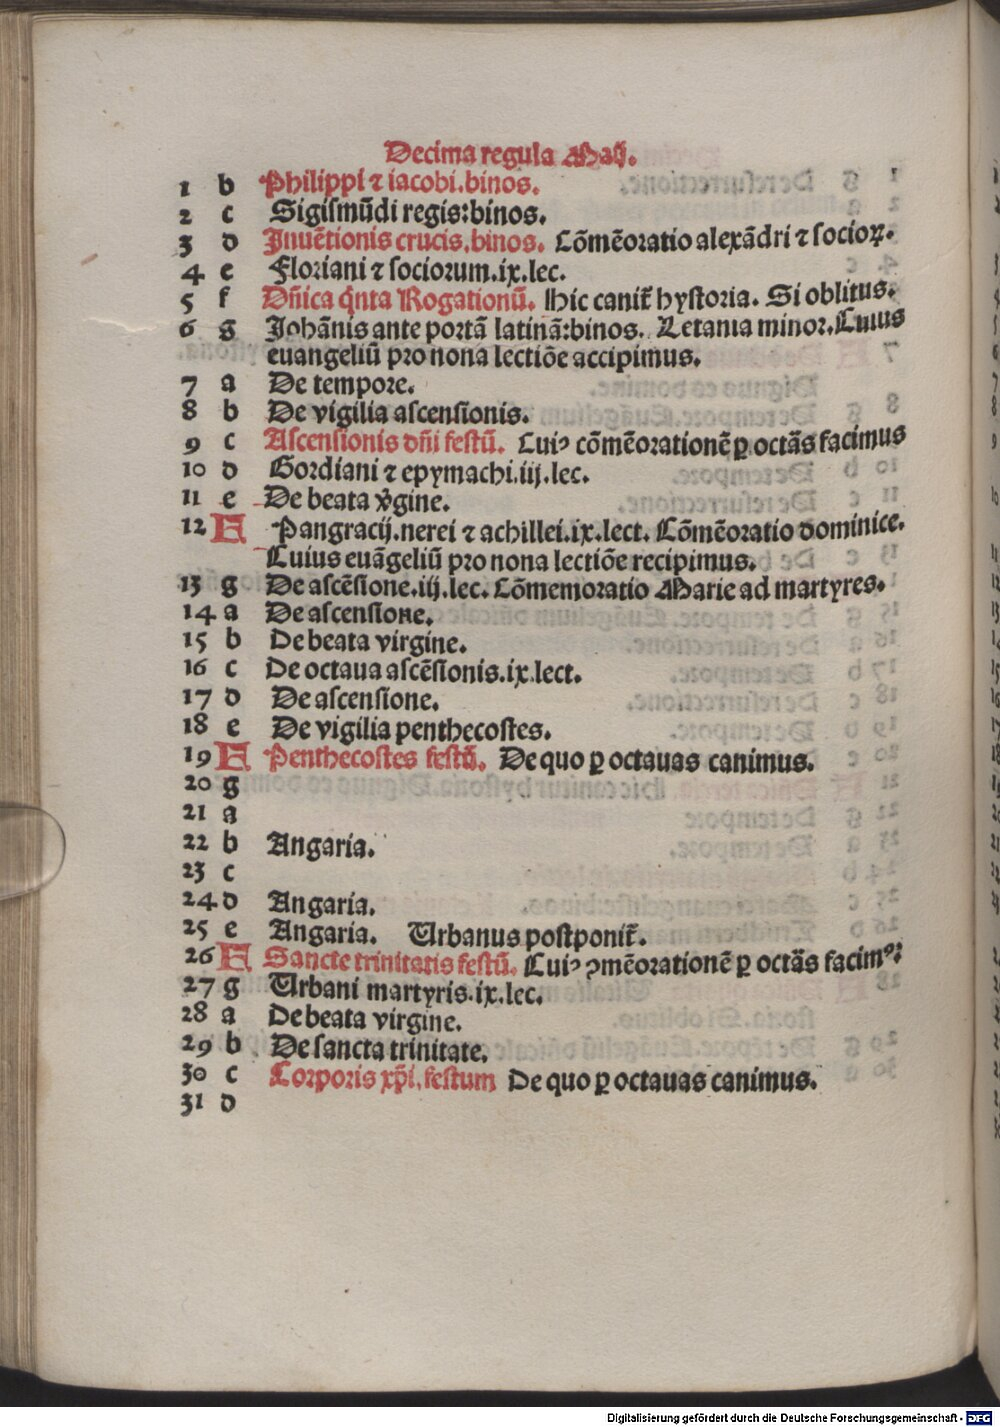 Decima regula Maij.
1 b Philippi ⁊ iacobi.binos.
2 c Sigiſmūdi regis:binos.
3 d Inuētionis crucis.binos. Cōmēoratio alexādri ⁊ ſocioꝝ.
4 e Floriani ⁊ ſociorum.ix.lec.
5 f Dn̄ica q̇nta Rogationū. Hic canit᷑ hyſtoria. Si oblitus.
6 g Johānis ante portā latinā:binos. Letania minor.Cuius
euangeliū pro nona lectiōe accipimus.
7 a De tempore.
8 b De vigilia aſcenſionis.
9 c Aſcenſionis dn̄i feſtū. Cuiꝰ cōmēorationē ꝑ octās facimus
10 d Gordiani ⁊ epymachi.iij.lec.
11 e De beata v̾gine.
12 A Pangracij.nerei ⁊ achillei.ix.lect. Cōmēoratio dominice.
Cuius euāgeliū pro nona lectiōe recipimus.
13 g De aſcēſione.iij.lec. Cōmemoratio Marie ad martyres.
14 a De aſcenſione.
15 b De beata virgine.
16 c De octaua aſcēſionis.ix.lect.
17 d De aſcenſione.
18 e De vigilia penthecoſtes.
19 A Penthecoſtes feſtū. De quo ꝑ octauas canimus.
20 g
21 a
22 b Angaria.
23 c
24 d Angaria.
25 e Angaria. Urbanus poſtponit᷑.
26 A Sancte trinitatis feſtū. Cuiꝰ ꝯmēorationē ꝑ octās facimꝰ
27 g Urbani martyris.ix.lec.
28 a De beata virgine.
29 b De ſancta trinitate.
30 c Corporis xp̄i.feſtum De quo ꝑ octauas canimus.
31 d
Digitalisierung gefördert durch die Deutsche Forschungsgemeinschaft - DFG